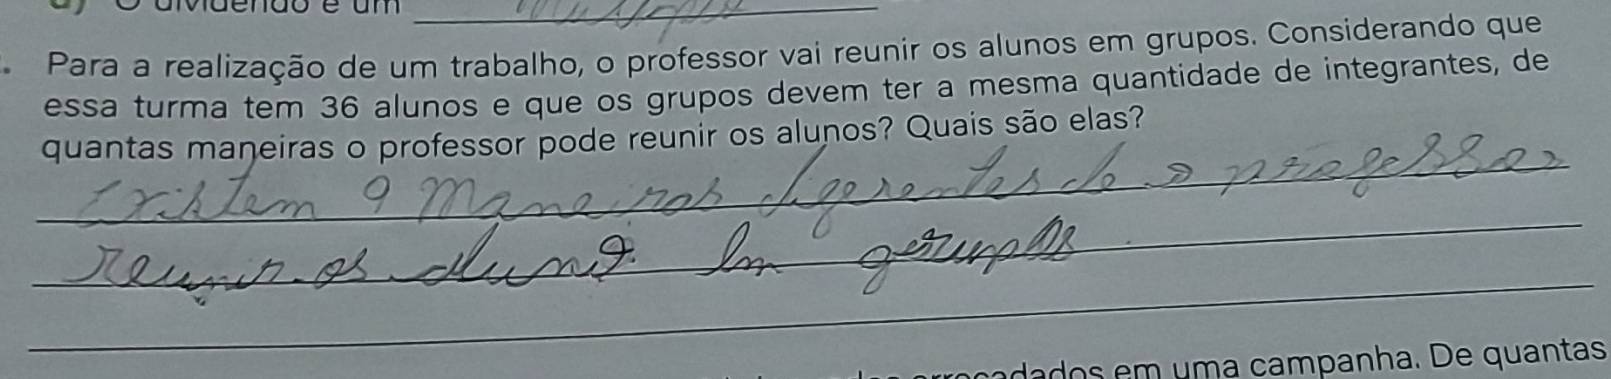 O dividendo é um
Para a realização de um trabalho, o professor vai reunir os alunos em grupos. Considerando que
essa turma tem 36 alunos e que os grupos devem ter a mesma quantidade de integrantes, de
quantas maneiras o professor pode reunir os alunos? Quais são elas?
Existem 9 maneiras diferentes de o professor
reunir os alunos em gerupos.
em uma campanha. De quantas